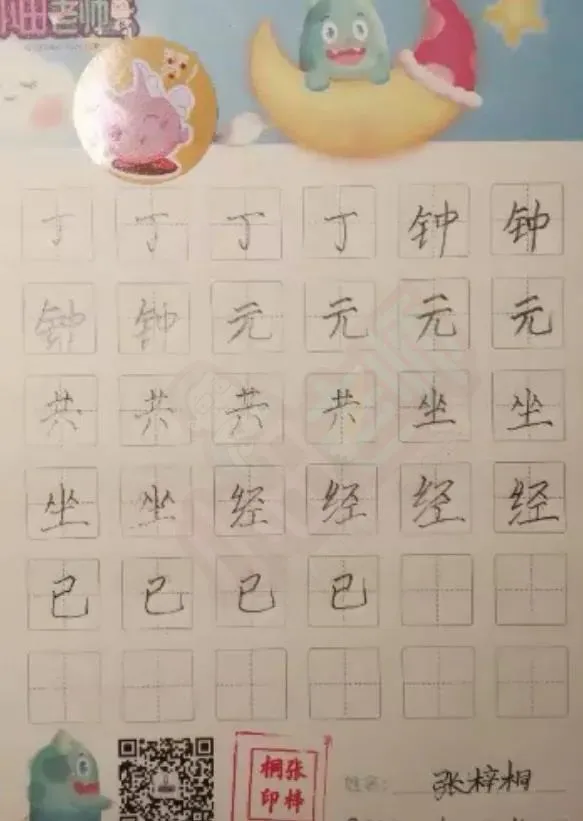 老师
丁 丁 丁 丁 钟 钟
钟 钟 元 元 元 元
共 共 共 共 坐 坐
坐 坐 经 经 经 经
已 已 已 已
张梓
桐印
姓名: 张梓桐